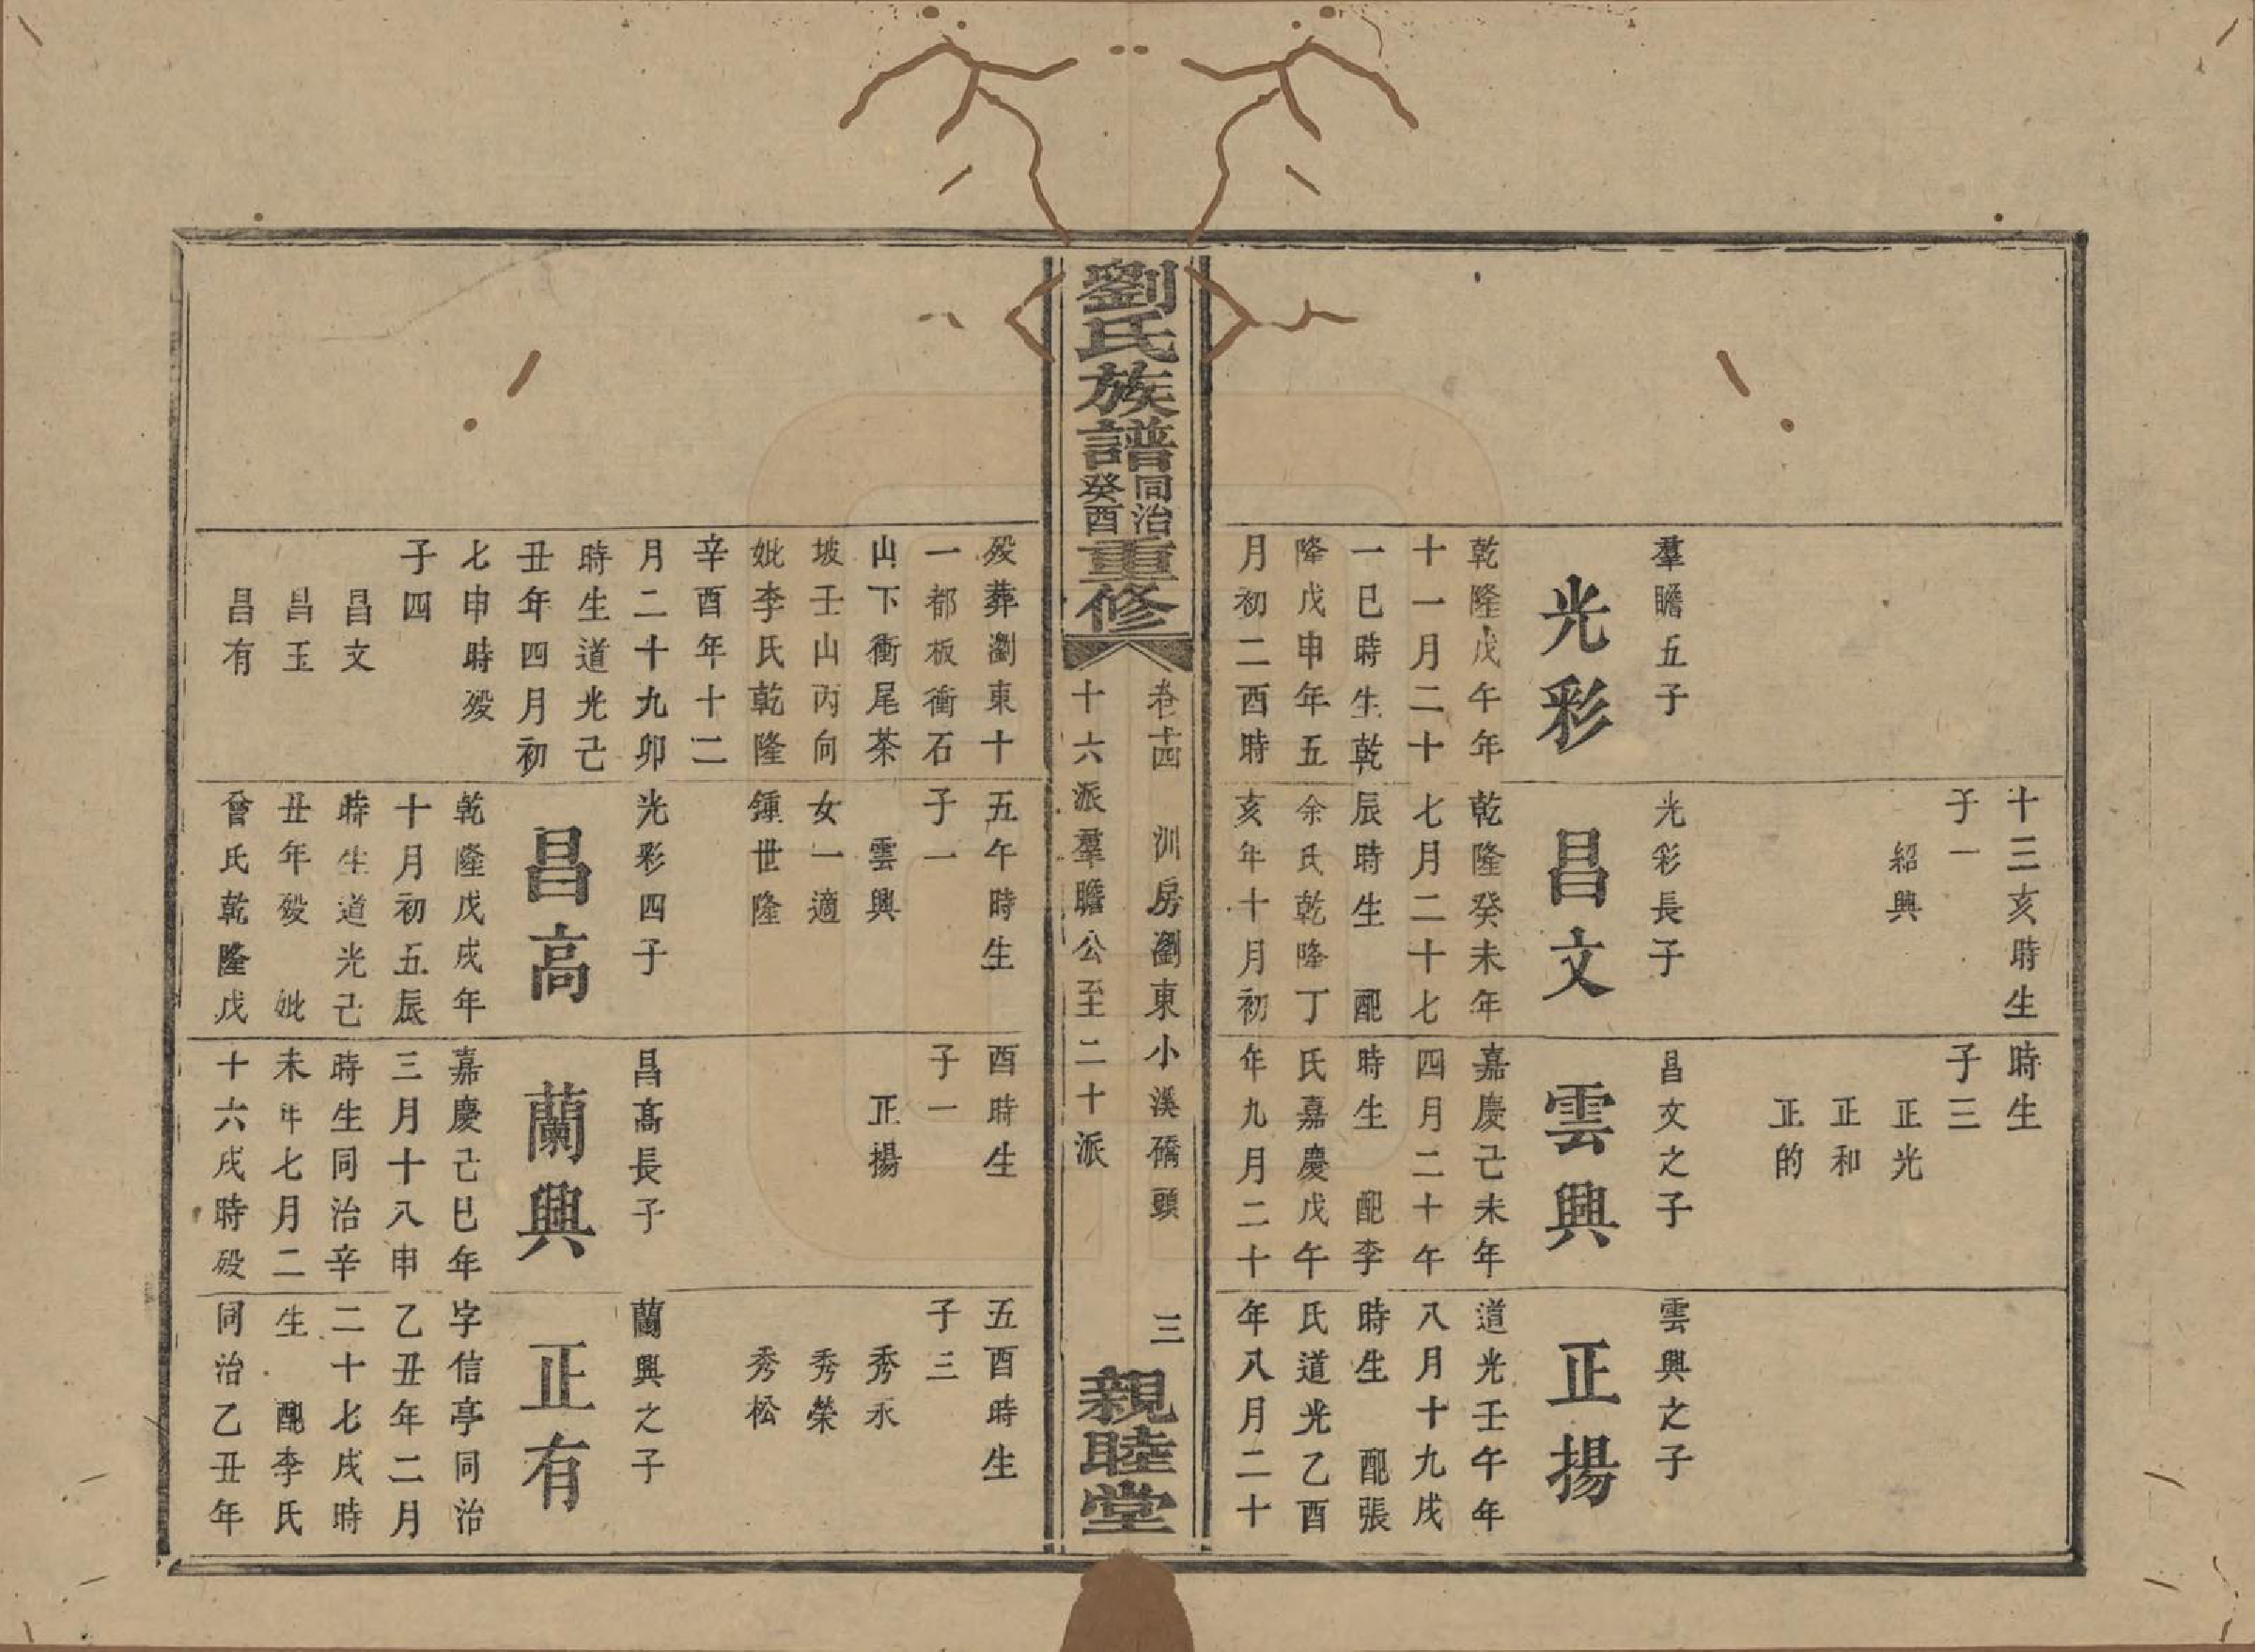 十三亥時生
子一
紹興
時生
子三
正光
正和
正的
羣瞻五子
光彩
乾隆戊午年
十一月二十
一巳時生乾
隆戊申年五
月初二酉時
光彩長子
昌文
乾隆癸未年
七月二十七
辰時生 配
余氏乾隆丁
亥年十月初
昌文之子
雲興
嘉慶己未年
四月二十午
時生 配李
氏嘉慶戊午
年九月二十
雲興之子
正揚
道光壬午年
八月十九戌
時生 配張
氏道光乙酉
年八月二十
劉氏族譜同治癸酉重修
卷十四 訓房瀏東小溪磱頭 三
十六派羣瞻公至二十派
親睦堂
歿葬瀏東十
一都板衝石
山下衝尾茶
坡壬山丙向
妣李氏乾隆
辛酉年十二
月二十九卯
時生道光己
丑年四月初
七申時歿
子四
昌文
昌玉
昌有
五午時生
子一
雲興
女一適
鍾世隆
光彩四子
昌高
乾隆戊戌年
十月初五辰
時生道光己
丑年歿 妣
曾氏乾隆戊
酉時生
子一
正揚
昌高長子
蘭興
嘉慶己巳年
三月十八申
時生同治辛
未年七月二
十六戌時歿
五酉時生
子三
秀永
秀榮
秀松
蘭興之子
正有
字信亭同治
乙丑年二月
二十七戌時
生 配李氏
同治乙丑年